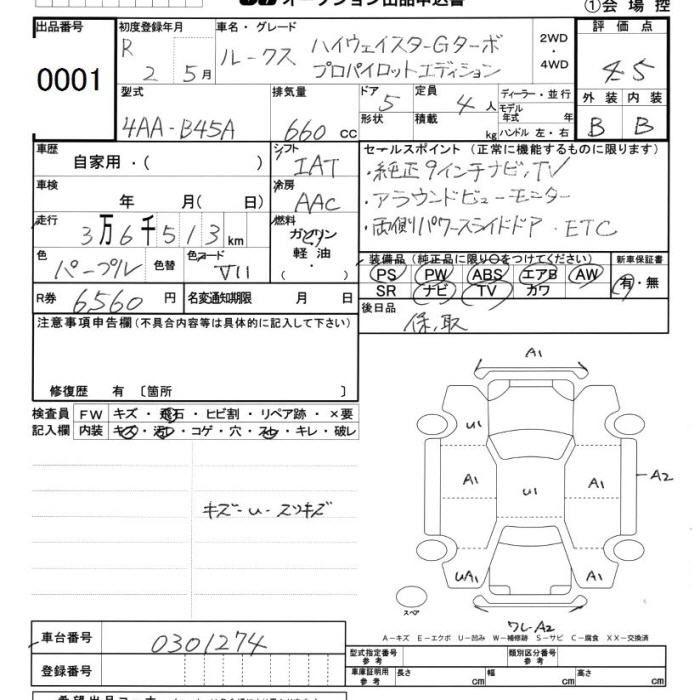 オークション出品申込書
①会場控
出品番号
0001
初度登録年月
R 2 5月
車名・グレード
ルークス ハイウェイスターGターボ
プロパイロットエディション
2WD
・
4WD
評価点
4.5
外装 内装
B B
型式
4AA-B45A
排気量
660cc
ドア 5
形状
定員 4人
積載 kg
ディーラー・並行
モデル年式 年
ハンドル 左・右
車歴
自家用・( )
シフト
IAT
車検
年 月(日)
冷房
AAC
走行
3万6千513km
燃料
ガソリン
軽油・
( )
色
パープル
色替
色コード
R券 6560円
名変通知期限 月 日
セールスポイント(正常に機能するものに限ります)
・純正9インチナビ,TV
・アラウンドビューモニター
・両側パワースライドドア・ETC
装備品(純正品に限り○をつけてください)
PS PW ABS エアB AW
SR ナビ TV カワ
新車保証書
有・無
後日品
保,取
注意事項申告欄(不具合内容等は具体的に記入して下さい)
修復歴 有〔箇所 〕
検査員記入欄
FW キズ・飛石・ヒビ割・リペア跡・×要
内装 キズ・汚レ・コゲ・穴・スレ・キレ・破レ
キズ-u-スリキズ
A1
U1
A1 U1 A1 A2
UA1 A1
スペア
ワレ-A2
A－キズ E－エクボ U－凹み W－補修跡 S－サビ C－腐食 XX－交換済
車台番号 0301274
登録番号
型式指定番号 参考
類別区分番号 参考
車庫証明用 参考
長さ cm 幅 cm 高さ cm